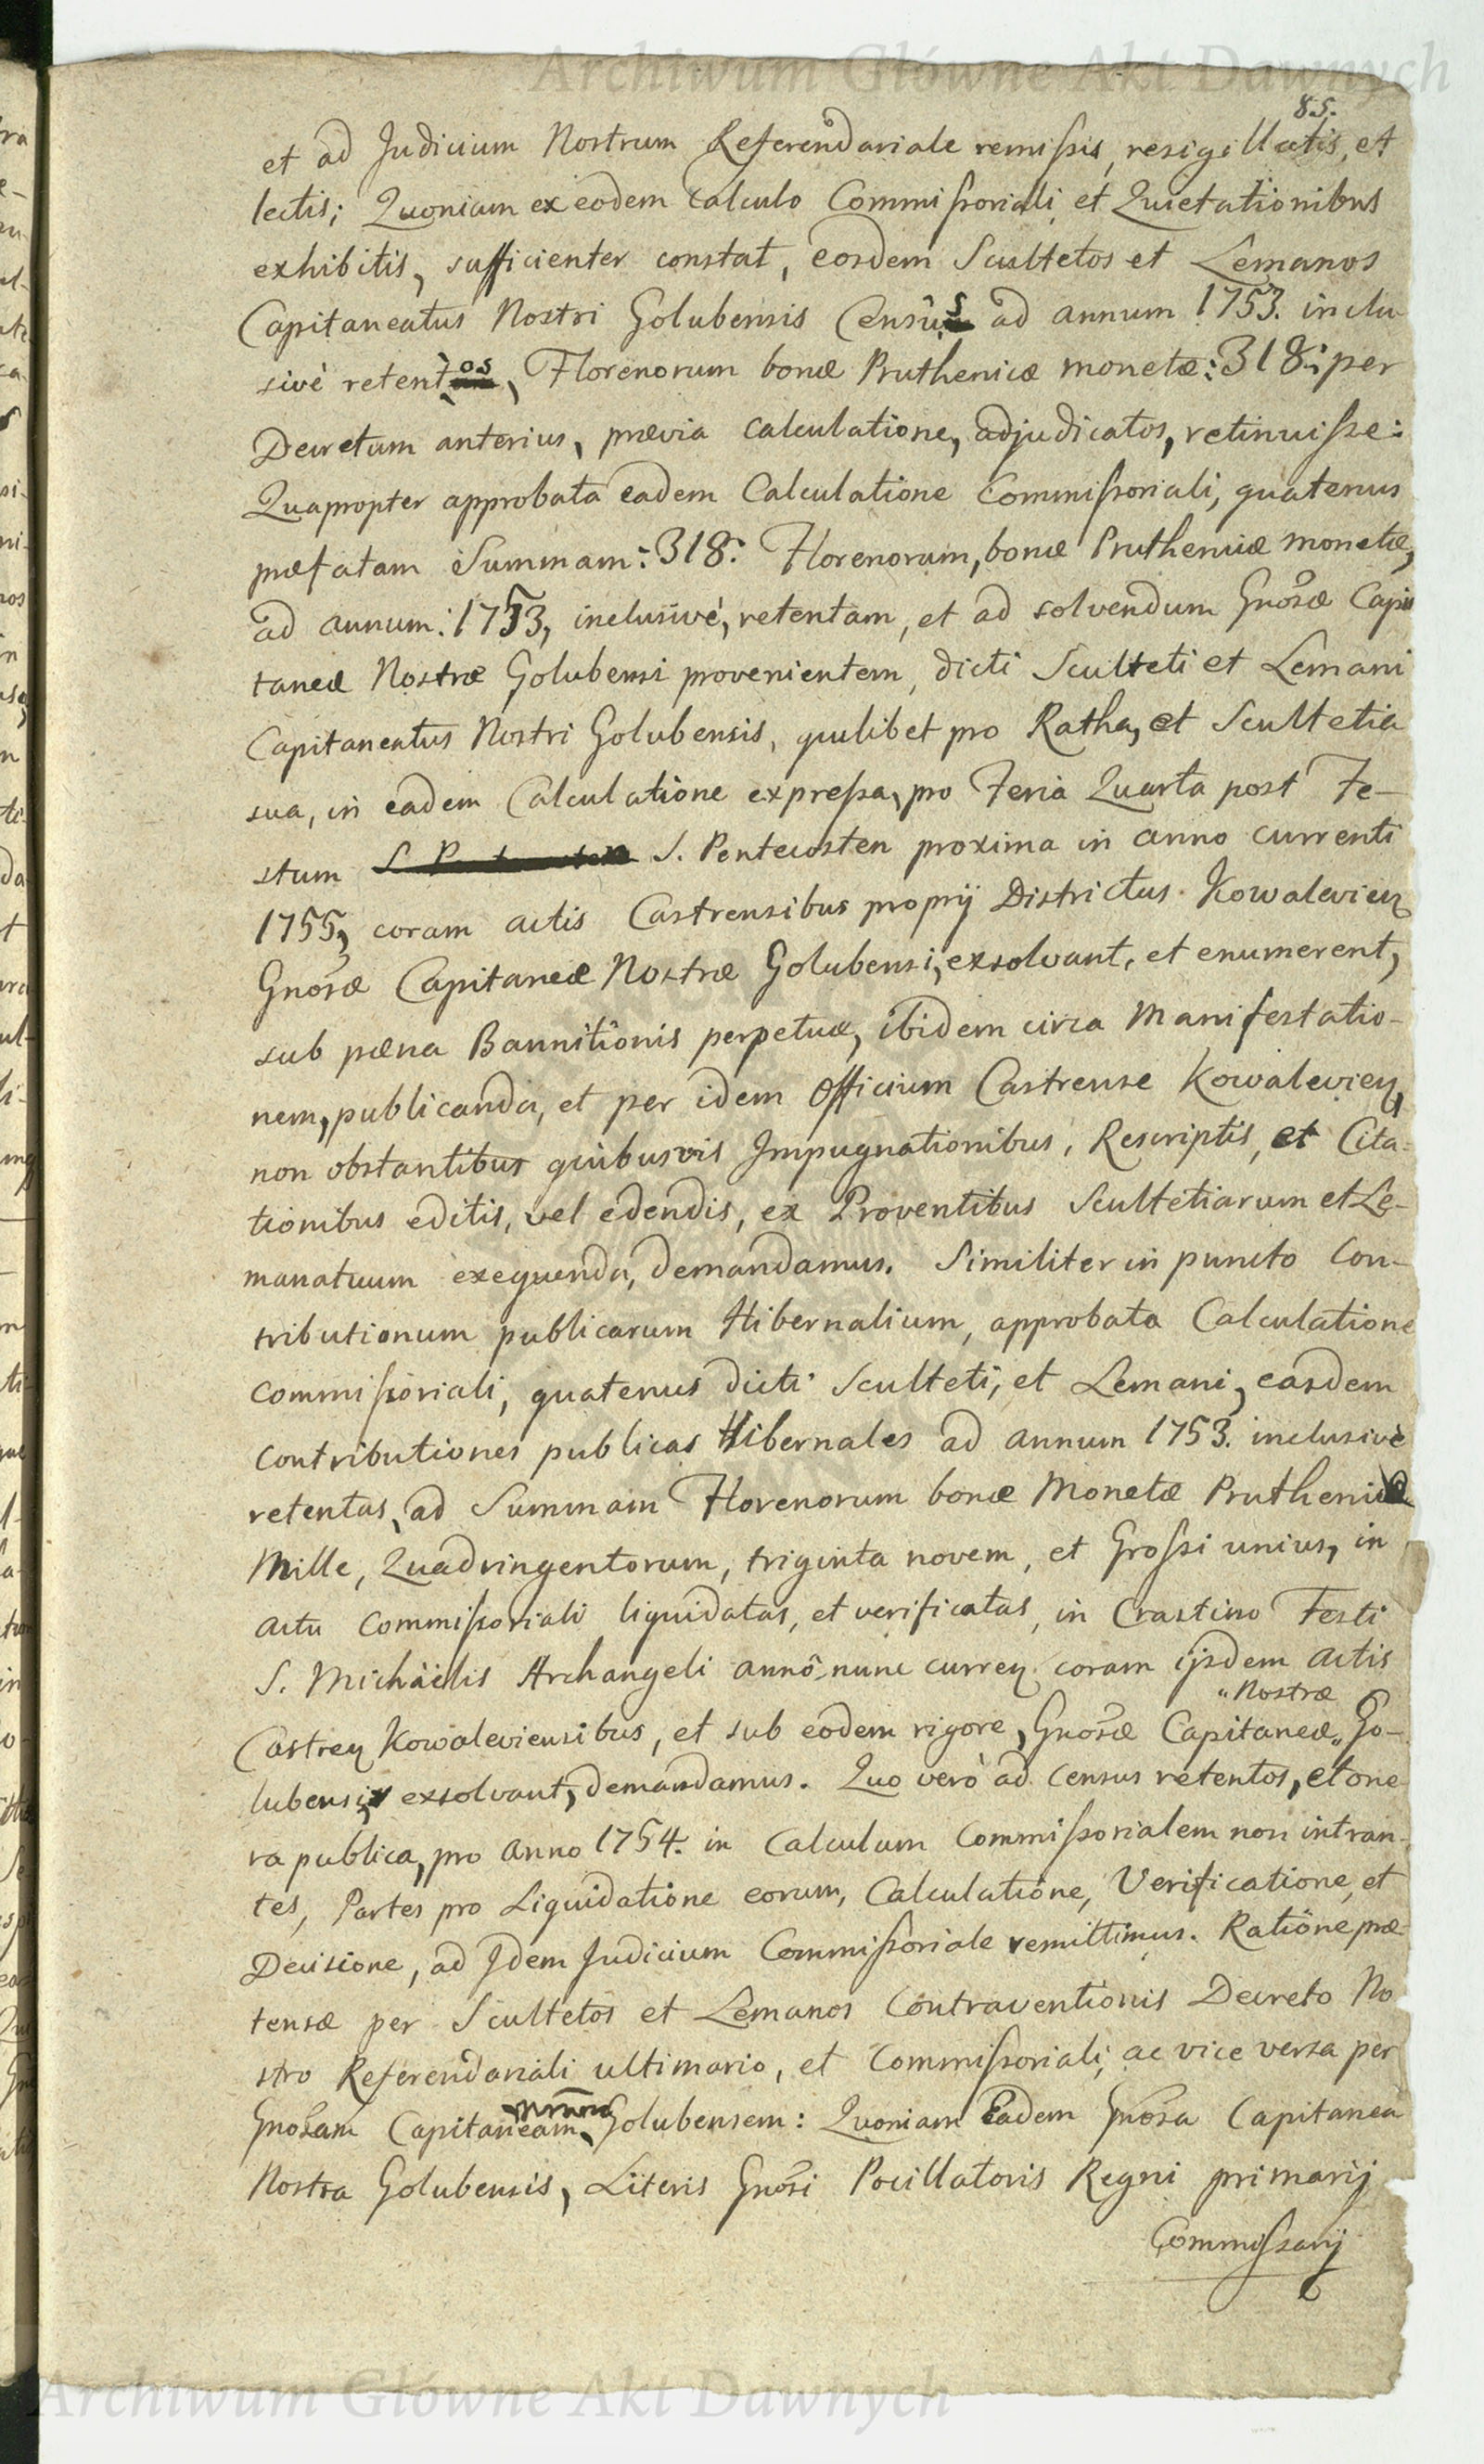 Archiwum Główne Akt Dawnych
85.
et ad Judicium Nostrum Referendariale remissis, resigillatis, et
lectis; Quoniam ex eodem Calculo Commissoriali et Quietationibus
exhibitis, sufficienter constat, eosdem Scultetos et Lemanos
Capitaneatus Nostri Golubensis Censûs ad annum 1753. inclu
sivè retentos, Florenorum bonæ Pruthenicæ monetæ: 318: per
Decretum anterius, prævia calculatione, adjudicatos, retinuisse:
Quapropter approbata eadem Calculatione Commissoriali, quatenus
præfatam Summam: 318: Florenorum, bonæ Prutheniæ monetæ,
ad annum: 1753, inclusivè, retentam, et ad solvendum Gnosæ Capi
taneæ Nostræ Golubensi provenientem, dicti Sculteti et Lemani
Capitaneatus Nostri Golubensis, quilibet pro Ratha, et Scultetia
sua, in eadem Calculatione expressa, pro Feria Quarta post Fe-
stum S. Pentecosten proxima in anno currenti
1755, coram actis Castrensibus proprij Districtus Kowalevien
Gnosæ Capitaneæ Nostræ Golubensi, exsolvant, et enumerent,
sub pæna Bannitionis perpetuæ, ibidem circa Manifestatio-
nem, publicanda, et per idem Officium Castrense Kowalevien,
non obstantibus quibusvis Impugnationibus, Rescriptis, et Cita-
tionibus editis, vel edendis, ex Proventibus Scultetiarum et Le-
manatuum exequenda, demandamus. Similiter in puncto Con-
tributionum publicarum Hibernalium, approbata Calculatione
Commissoriali, quatenus dicti Sculteti, et Lemani, easdem
Contributiones publicas Hibernales ad annum 1753. inclusivè
retentas, ad Summam Florenorum bonæ Monetæ Pruthenicæ
Mille, Quadringentorum, triginta novem, et Grossi unius, in
actu Commissoriali liquidatas, et verificatas, in Crastino Festi
S. Michäelis Archangeli annô nunc curren coram ijsdem actis
„Nostræ
Castren Kowaleviensibus, et sub eodem rigore, Gnosæ Capitaneæ „ Go-
lubensi, exsolvant, demandamus. Quo verò ad Census retentos, et one
ra publica, pro Anno 1754. in Calculum Commissorialem non intran-
tes, Partes pro Liquidatione eorum, Calculatione, Verificatione, et
Decisione, ad Idem Judicium Commissoriale remittimus. Ratione præ-
tensæ per Scultetos et Lemanos Contraventionis Decreto No
stro Referendariali ultimario, et Commissoriali, ac vice versa per
Gnosam Capitaneam Golubensem: Quoniam Eadem Gnosa Capitanea
Nostra Golubensis, Literis Gnosi Pocillatoris Regni primarij
Commissarij
Archiwum Główne Akt Dawnych